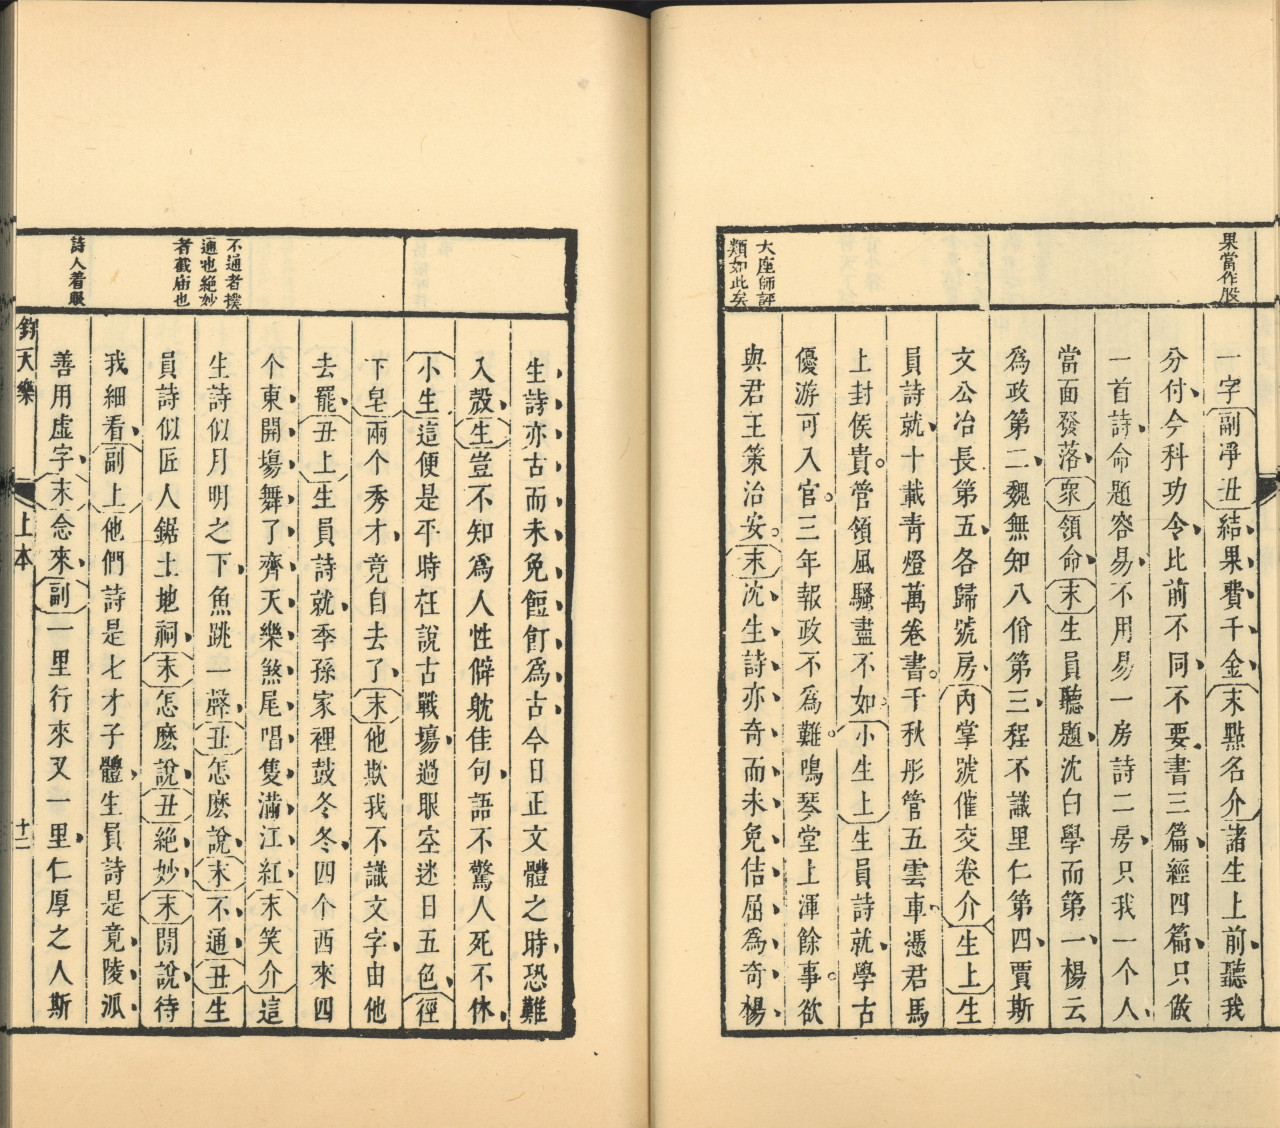 果當作股
大座師評
類如此矣
一字副凈丑結果費千金末點名介諸生上前聽我
分付今科功令比前不同不要書三篇經四篇只做
一首詩命題容易不用易一房詩二房只我一个人
當面發落眾領命末生員聽題沈白學而第一楊云
爲政第二魏無知八佾第三程不識里仁第四賈斯
文公冶長第五各歸號房內掌號催交卷介生上生
員詩就十載青燈萬卷書千秋彤管五雲車憑君馬
上封侯貴管領風騷盡不如小生上生員詩就學古
優游可入官三年報政不爲難鳴琴堂上渾餘事欲
與君王策治安末沈生詩亦奇而未免佶屈爲奇楊
不通者撲
通也絕妙
者截庙也
詩人着眼
生詩亦古而未免餖飣爲古今日正文體之時恐難
入殼生豈不知爲人性僻躭佳句語不驚人死不休
小生這便是平時在說古戰塲過眼空迷日五色徑
下皂兩个秀才竟自去了末他欺我不識文字由他
去罷丑上生員詩就季孫家裡鼓冬冬四个西來四
个東開塲舞了齊天樂煞尾唱隻滿江紅末笑介這
生詩似月明之下魚跳一聲丑怎麽說末不通丑生
員詩似匠人鋸土地祠末怎麽說丑絕妙末閒說待
我細看副上他們詩是七才子體生員詩是竟陵派
善用虛字末念來副一里行來又一里仁厚之人斯
鈞天樂
上本
十二